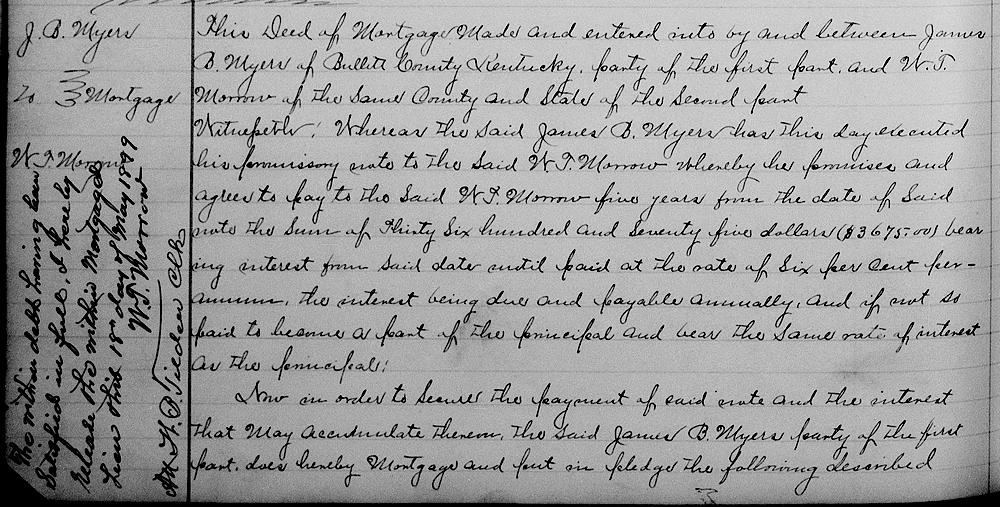 J. B. Myers
to } Mortgage
W. T. Morrow
The within debt having been
Satisfied in full, I hereby
release the within Mortgage
Lien this 18" day of May 1899
W. T. Morrow
Att H. P. Tieden Clk
This Deed of Mortgage Made and entered into by and between James
B. Myers of Bullitt County Kentucky, party of the first part, and W. T.
Morrow of the Same County and State of the Second part
Witnesseth: Whereas the Said James B. Myers has this day executed
his promissory note to the Said W. T. Morrow whereby he promises and
agrees to pay to the Said W. T. Morrow five years from the date of Said
note the Sum of Thirty Six hundred and Seventy five dollars ($3675.00) bear
ing interest from Said date until paid at the rate of Six per Cent per-
annum, the interest being due and payable annually, and if not so
paid to become a part of the principal and bear the Same rate of interest
as the principal:
Now in order to Secure the payment of said note and the interest
that May accumulate thereon, the Said James B. Myers party of the first
part, does hereby Mortgage and put in pledge the following described